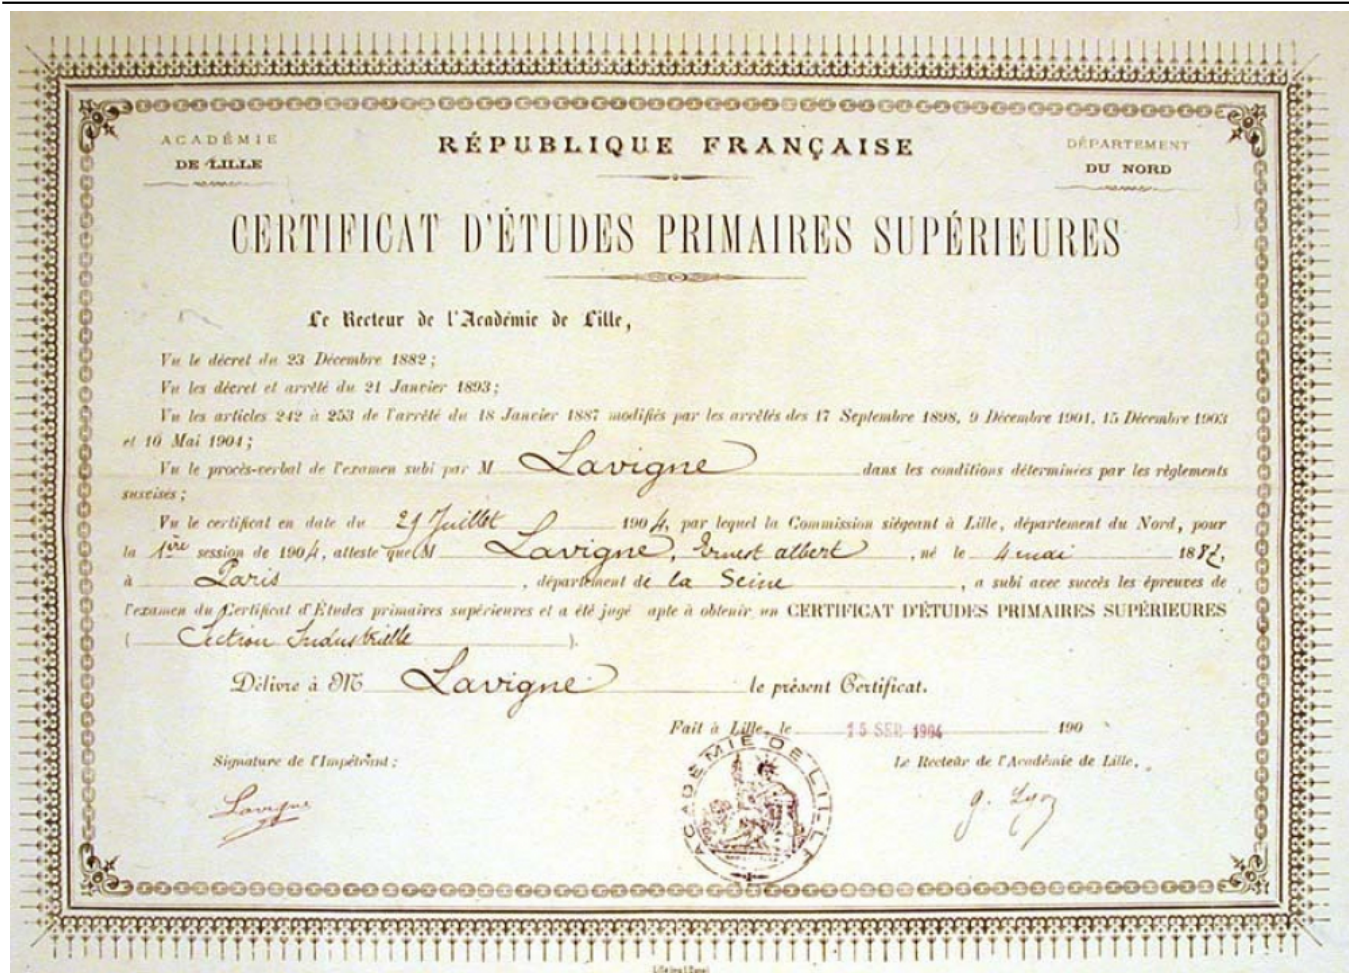 ACADÉMIE
DE LILLE
RÉPUBLIQUE FRANÇAISE
DÉPARTEMENT
DU NORD
CERTIFICAT D'ÉTUDES PRIMAIRES SUPÉRIEURES
Le Recteur de l'Académie de Lille,
Vu le décret du 23 Décembre 1882 ;
Vu les décret et arrêté du 21 Janvier 1893 ;
Vu les articles 242 à 253 de l'arrêté du 18 Janvier 1887 modifiés par les arrêtés des 17 Septembre 1898, 9 Décembre 1901, 15 Décembre 1903
et 10 Mai 1904 ;
Vu le procès-verbal de l'examen subi par M Lavigne dans les conditions déterminées par les règlements
susvisés ;
Vu le certificat en date du Juillet 1904, par lequel la Commission siégeant à Lille, département du Nord, pour
la 1ère session de 1904, atteste que M Lavigne, Ernest albert, né le 4 mai 1887,
à Paris, département de la Seine, a subi avec succès les épreuves de
l'examen du Certificat d'Études primaires supérieures et a été jugé apte à obtenir un CERTIFICAT D'ÉTUDES PRIMAIRES SUPÉRIEURES
( Section Industrielle ).
Délivré à M Lavigne le présent Certificat.
Fait à Lille, le 15 SEP 1904 190
Signature de l'Impétrant :
Le Recteur de l'Académie de Lille,
Lavigne
g. Lyon
ACADÉMIE DE LILLE